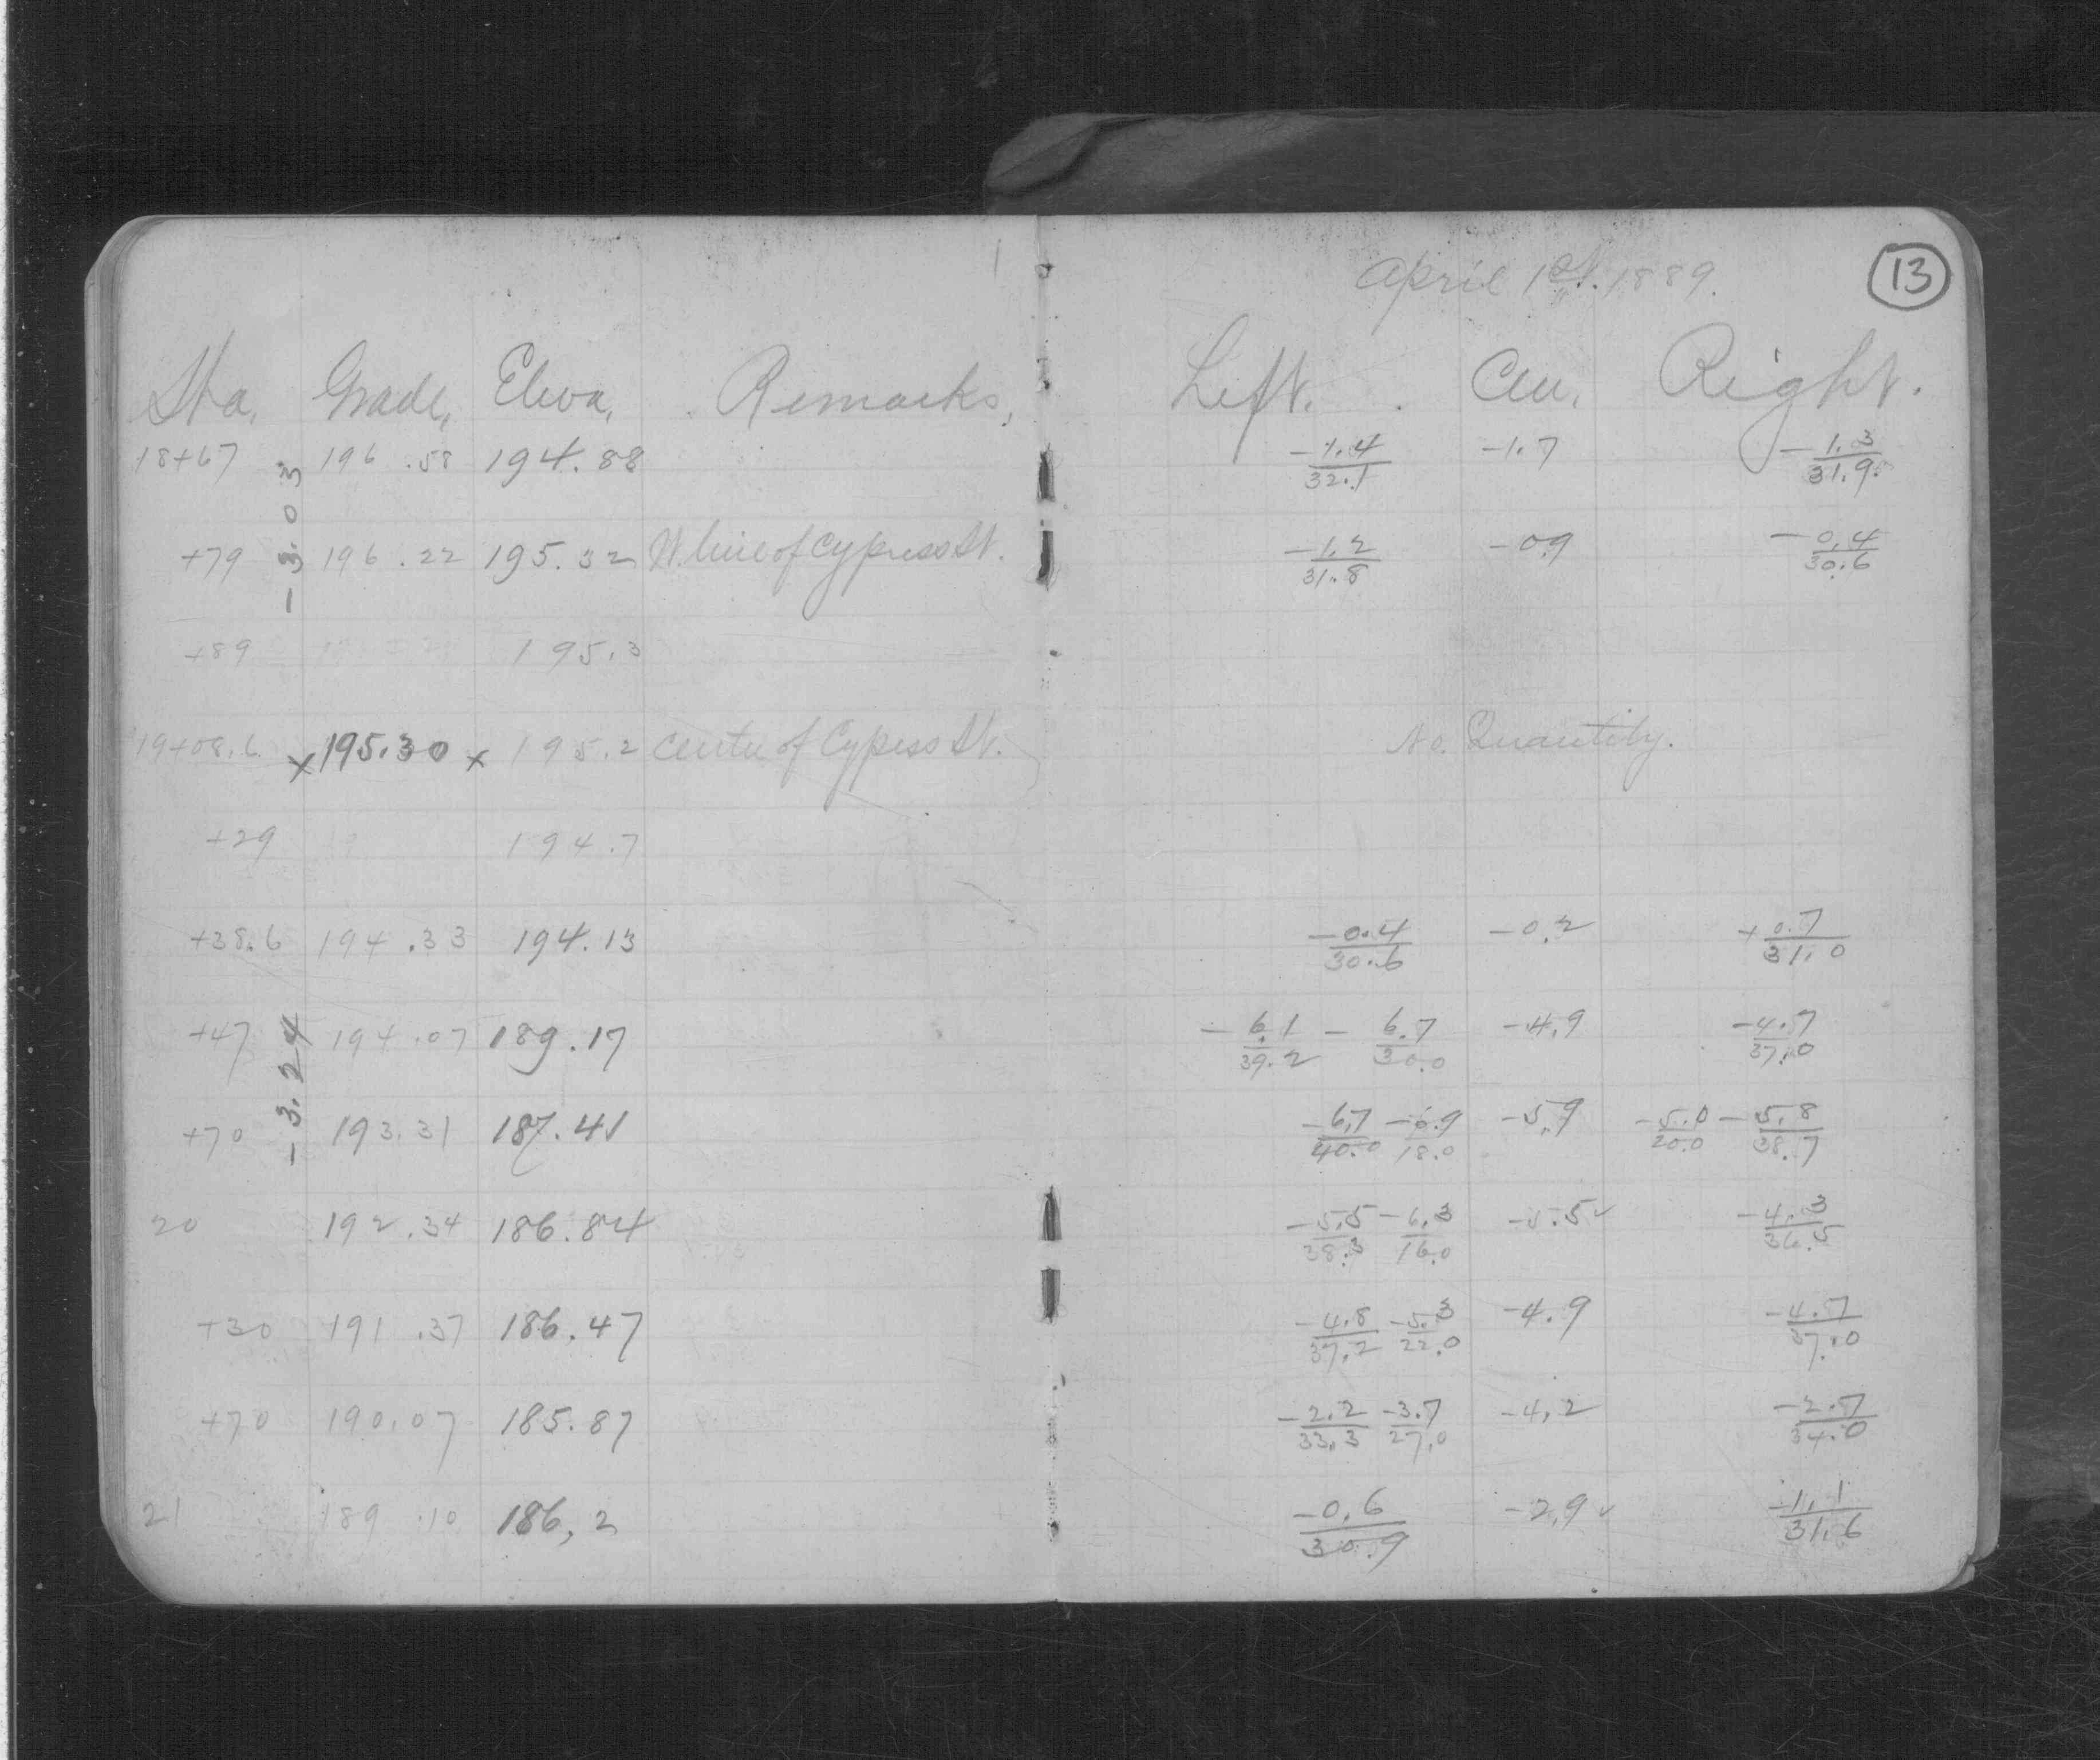 April 1st. 1889. 13
Sta. Grade, Eleva, Remarks, Left. Cen. Right.
18+67 196.58 194.88 -1.4/32.1 -1.7 -1.3/31.9
-3.03
+79 196.22 195.32 W. line of Cypress St. -1.2/31.8 -0.9 -0.4/30.6
+89 195.3
19+08.6 x 195.30 x 195.2 Center of Cypess St. No. Quantity.
+29 194.7
+38.6 194.33 194.13 -0.4/30.6 -0.2 +0.7/31.0
+47 194.07 189.17 -6.1/39.2 -6.7/30.0 -4.9 -4.7/37.0
-3.24
+70 193.31 187.41 -6.7/40.0 -6.9/18.0 -5.9 -5.0/20.0 -5.8/38.7
20 192.34 186.84 -5.5/38.3 -6.3/16.0 -5.5✓ -4.3/36.5
+30 191.37 186.47 -4.8/37.2 -5.3/22.0 -4.9 -4.7/37.0
+70 190.07 185.87 -2.2/33.3 -3.7/27.0 -4.2 -2.7/34.0
21 189.10 186,2 -0.6/30.9 -2.9✓ -1.1/31.6